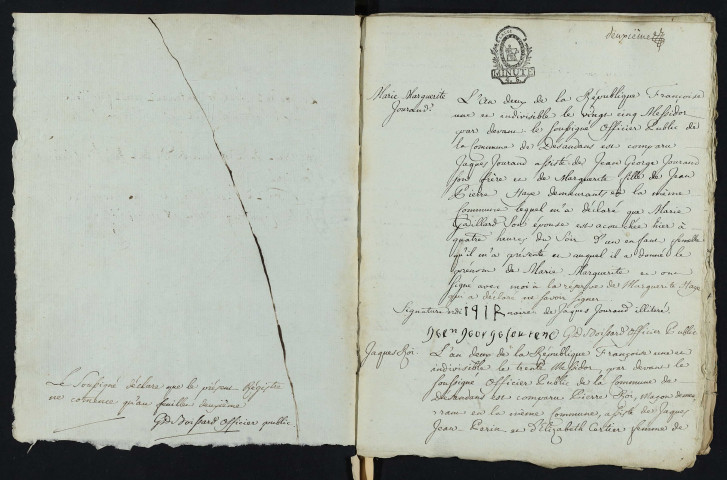 Le Soussigné déclare que le présent Registre
ne comence qu'au feuillet deuxième
Gd Boissard officier public
deuxième
MINUTE
Marie Marguerite
Jouraud
L'An deux de la République Françoise
une et indivisible le vingt cinq Messidor
par devant le soussigné Officier Public de
la Commune de Desandans est comparu
Jaques Jouraud assisté de Jean George Jouraud
son frère et de Marguerite fille de Jean
Pierre demeurants en la même
Commune lequel m'a déclaré que Marie
Gaillard son épouse est acouchée hier à
quatre heures du soir d'un enfant femelle
qu'il m'a présenté et auquel il a donné le
prénom de Marie Marguerite et ont
signé avec moi à la réserve de Marguerite
qui a déclaré ne savoir signer
Signature de Jaques Jouraud illitéré.
Jean George Jourau Gd Boissard Officier Public
Jaques
L'an deux de la République Françoise une et
indivisible le trente Messidor par devant le
soussigné Officier Public de la Commune de
Desandans est comparu Pierre Maçon demeu
rant en la même Commune, assisté de Jaques
Jean Perin et d'Elizabeth Cartier femme de